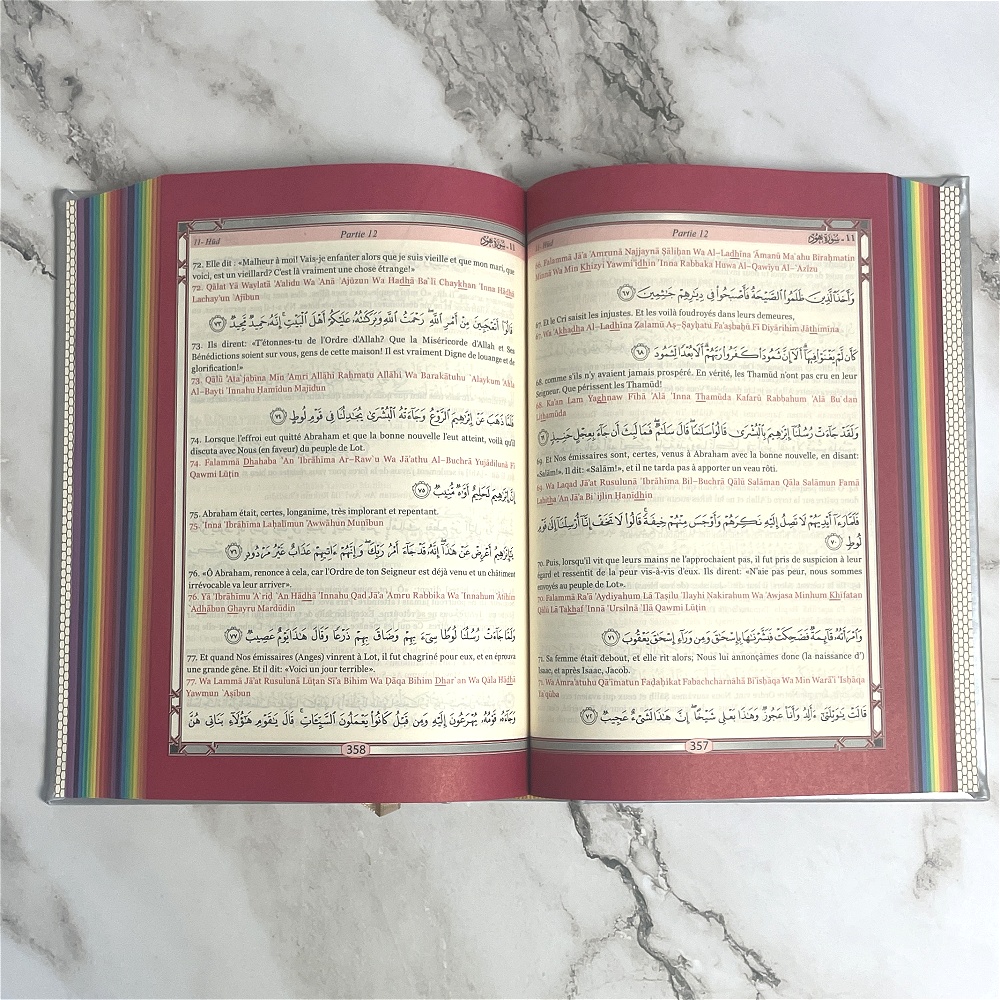 11- Hūd
Partie 12
١١ - سورة هود
66. Falammā Jā'a 'Amrunā Najjaynā Şāliĥan Wa Al-Ladhīna 'Āmanū Ma`ahu Biraĥmatin
Minnā Wa Min Khizyi Yawmi'idhin 'Inna Rabbaka Huwa Al-Qawīyu Al-`Azīzu
وَأَخَذَ الَّذِينَ ظَلَمُوا الصَّيْحَةُ فَأَصْبَحُوا فِي دِيَارِهِمْ جَاثِمِينَ ٦٧
67. Et le Cri saisit les injustes. Et les voilà foudroyés dans leurs demeures,
67. Wa 'Akhadha Al-Ladhīna Žalamū Aş-Şayĥatu Fa'aşbaĥū Fī Diyārihim Jāthimīna
كَأَن لَّمْ يَغْنَوْا فِيهَا أَلَا إِنَّ ثَمُودَا كَفَرُوا رَبَّهُمْ أَلَا بُعْدًا لِّثَمُودَ ٦٨
68. comme s'ils n'y avaient jamais prospéré. En vérité, les Thamūd n'ont pas cru en leur
Seigneur. Que périssent les Thamūd!
68. Ka'an Lam Yaghnaw Fīhā 'Alā 'Inna Thamūda Kafarū Rabbahum 'Alā Bu`dan
Lithamūda
وَلَقَدْ جَاءَتْ رُسُلُنَا إِبْرَاهِيمَ بِالْبُشْرَىٰ قَالُوا سَلَامًا قَالَ سَلَامٌ فَمَا لَبِثَ أَن جَاءَ بِعِجْلٍ حَنِيذٍ ٦٩
69. Et Nos émissaires sont, certes, venus à Abraham avec la bonne nouvelle, en disant:
«Salām!». Il dit: «Salām!», et il ne tarda pas à apporter un veau rôti.
69. Wa Laqad Jā'at Rusulunā 'Ibrāhīma Bil-Buchrá Qālū Salāman Qāla Salāmun Famā
Labitha 'An Jā'a Bi`ijlin Ĥanīdhin
فَلَمَّا رَأَىٰ أَيْدِيَهُمْ لَا تَصِلُ إِلَيْهِ نَكِرَهُمْ وَأَوْجَسَ مِنْهُمْ خِيفَةً قَالُوا لَا تَخَفْ إِنَّا أُرْسِلْنَا إِلَىٰ قَوْمِ
لُوطٍ ٧٠
70. Puis, lorsqu'il vit que leurs mains ne l'approchaient pas, il fut pris de suspicion à leur
égard et ressentit de la peur vis-à-vis d'eux. Ils dirent: «N'aie pas peur, nous sommes
envoyés au peuple de Lot».
70. Falammā Ra'á 'Aydiyahum Lā Taşilu 'Ilayhi Nakirahum Wa 'Awjasa Minhum Khīfatan
Qālū Lā Takhaf 'Innā 'Ursilnā 'Ilá Qawmi Lūţin
وَامْرَأَتُهُ قَائِمَةٌ فَضَحِكَتْ فَبَشَّرْنَاهَا بِإِسْحَاقَ وَمِن وَرَاءِ إِسْحَاقَ يَعْقُوبَ ٧١
71. Sa femme était debout, et elle rit alors; Nous lui annonçâmes donc (la naissance d')
Isaac, et après Isaac, Jacob.
71. Wa Amra'atuhu Qā'imatun Fađaĥikat Fabachcharnāhā Bi'isĥāqa Wa Min Warā'i 'Isĥāqa
Ya`qūba
قَالَتْ يَا وَيْلَتَىٰ أَأَلِدُ وَأَنَا عَجُوزٌ وَهَٰذَا بَعْلِي شَيْخًا إِنَّ هَٰذَا لَشَيْءٌ عَجِيبٌ ٧٢
357
11- Hūd
Partie 12
١١ - سورة هود
72. Elle dit : «Malheur à moi! Vais-je enfanter alors que je suis vieille et que mon mari, que
voici, est un vieillard? C'est là vraiment une chose étrange!»
72. Qālat Yā Waylatá 'A'alidu Wa 'Anā `Ajūzun Wa Hadhā Ba`lī Chaykhan 'Inna Hādhā
Lachay'un `Ajībun
قَالُوا أَتَعْجَبِينَ مِنْ أَمْرِ اللَّهِ رَحْمَتُ اللَّهِ وَبَرَكَاتُهُ عَلَيْكُمْ أَهْلَ الْبَيْتِ إِنَّهُ حَمِيدٌ مَّجِيدٌ ٧٣
73. Ils dirent: «T'étonnes-tu de l'Ordre d'Allah? Que la Miséricorde d'Allah et Ses
Bénédictions soient sur vous, gens de cette maison! Il est vraiment Digne de louange et de
glorification!»
73. Qālū 'Ata`jabīna Min 'Amri Allāhi Raĥmatu Allāhi Wa Barakātuhu `Alaykum 'Ahla
Al-Bayti 'Innahu Ĥamīdun Majīdun
فَلَمَّا ذَهَبَ عَنْ إِبْرَاهِيمَ الرَّوْعُ وَجَاءَتْهُ الْبُشْرَىٰ يُجَادِلُنَا فِي قَوْمِ لُوطٍ ٧٤
74. Lorsque l'effroi eut quitté Abraham et que la bonne nouvelle l'eut atteint, voilà qu'il
discuta avec Nous (en faveur) du peuple de Lot.
74. Falammā Dhahaba `An 'Ibrāhīma Ar-Raw`u Wa Jā'at/hu Al-Buchrá Yujādilunā Fī
Qawmi Lūţin
إِنَّ إِبْرَاهِيمَ لَحَلِيمٌ أَوَّاهٌ مُّنِيبٌ ٧٥
75. Abraham était, certes, longanime, très implorant et repentant.
75. 'Inna 'Ibrāhīma Laĥalīmun 'Awwāhun Munībun
يَا إِبْرَاهِيمُ أَعْرِضْ عَنْ هَٰذَا إِنَّهُ قَدْ جَاءَ أَمْرُ رَبِّكَ وَإِنَّهُمْ آتِيهِمْ عَذَابٌ غَيْرُ مَرْدُودٍ ٧٦
76. «Ô Abraham, renonce à cela, car l'Ordre de ton Seigneur est déjà venu et un châtiment
irrévocable va leur arriver».
76. Yā 'Ibrāhīmu 'A`riđ `An Hādhā 'Innahu Qad Jā'a 'Amru Rabbika Wa 'Innahum 'Ātīhim
`Adhābun Ghayru Mardūdin
وَلَمَّا جَاءَتْ رُسُلُنَا لُوطًا سِيءَ بِهِمْ وَضَاقَ بِهِمْ ذَرْعًا وَقَالَ هَٰذَا يَوْمٌ عَصِيبٌ ٧٧
77. Et quand Nos émissaires (Anges) vinrent à Lot, il fut chagriné pour eux, et en éprouva
une grande gêne. Et il dit: «Voici un jour terrible».
77. Wa Lammā Jā'at Rusulunā Lūţān Sī'a Bihim Wa Đāqa Bihim Dhar`an Wa Qāla Hādhā
Yawmun `Aşībun
وَجَاءَهُ قَوْمُهُ يُهْرَعُونَ إِلَيْهِ وَمِن قَبْلُ كَانُوا يَعْمَلُونَ السَّيِّئَاتِ قَالَ يَا قَوْمِ هَٰؤُلَاءِ بَنَاتِي هُنَّ
358